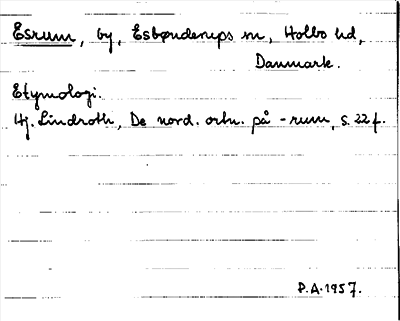 Esrum, by, Esbønderups sn, Holbo hd,
Danmark.
Etymologi.
Hj. Lindroth, De nord. ortn. på -rum, s. 22 f.
P.A. 1957.